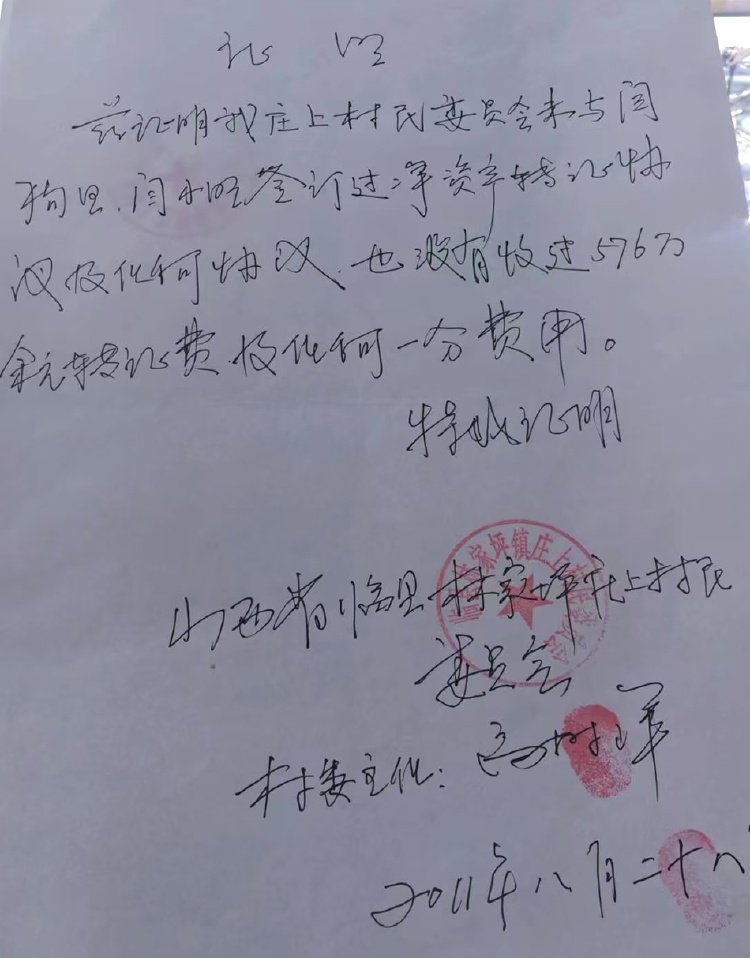 证明
兹证明我庄上村民委员会未与闫
狗旦、闫小旺签订过净资产转让协
议及任何协议,也没有收过576万
余元转让费及任何一分费用。
特此证明
山西省临县林家坪庄上村民
委员会
村委主任:高树军
2011年八月二十八
家坪镇庄上